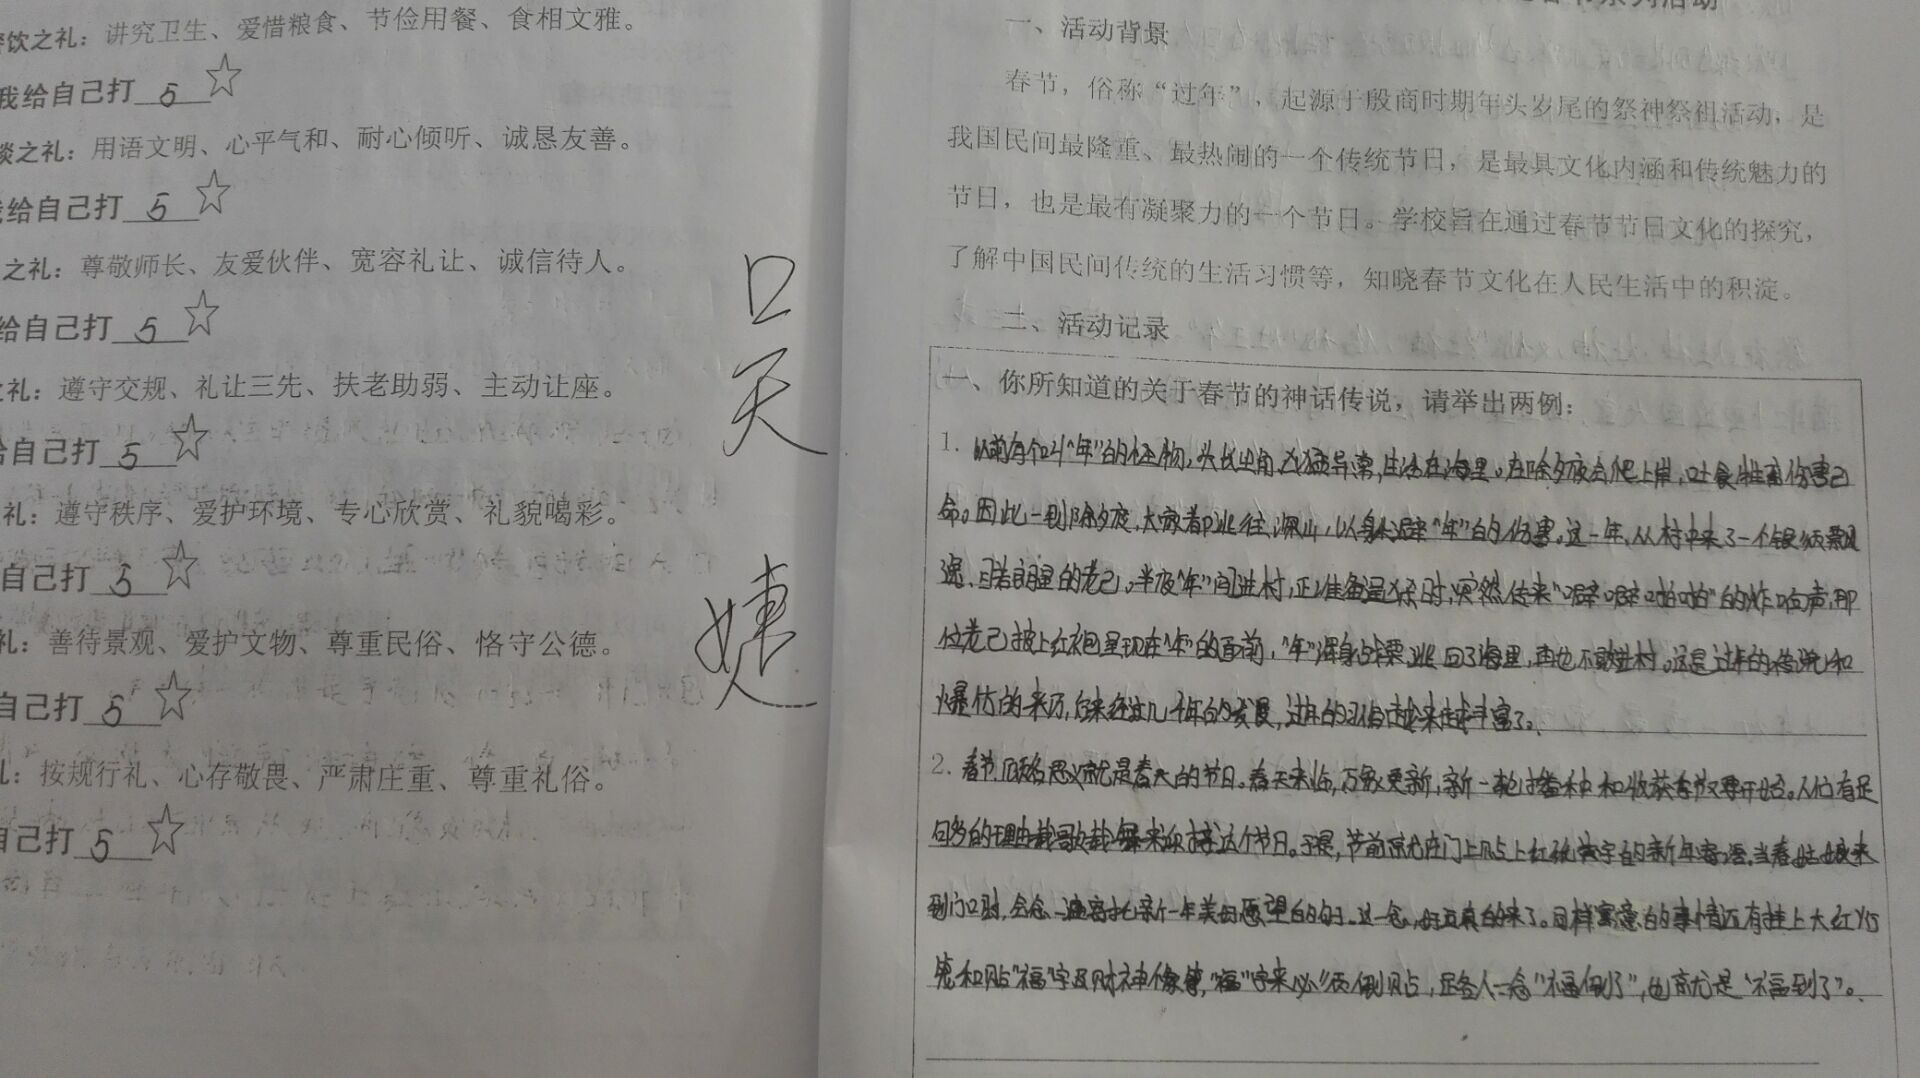 饮之礼：讲究卫生、爱惜粮食、节俭用餐、食相文雅。
我给自己打 5 ☆
谈之礼：用语文明、心平气和、耐心倾听、诚恳友善。
给自己打 5 ☆
之礼：尊敬师长、友爱伙伴、宽容礼让、诚信待人。
给自己打 5 ☆
之礼：遵守交规、礼让三先、扶老助弱、主动让座。
给自己打 5 ☆
礼：遵守秩序、爱护环境、专心欣赏、礼貌喝彩。
自己打 5 ☆
礼：善待景观、爱护文物、尊重民俗、恪守公德。
自己打 5 ☆
礼：按规行礼、心存敬畏、严肃庄重、尊重礼俗。
自己打 5 ☆
口
天
婕
春节系列活动
一、活动背景
春节，俗称“过年”，起源于殷商时期年头岁尾的祭神祭祖活动，是
我国民间最隆重、最热闹的一个传统节日，是最具文化内涵和传统魅力的
节日，也是最有凝聚力的一个节日。学校旨在通过春节节日文化的探究，
了解中国民间传统的生活习惯等，知晓春节文化在人民生活中的积淀。
二、活动记录
一、你所知道的关于春节的神话传说，请举出两例：
1. 以前有个叫“年”的怪物，头长尖角，凶猛异常，生活在海里。在除夕夜会爬上岸，吐食牲畜伤害己
命。因此一到除夕夜，大家都逃往深山，以躲避“年”的伤害。这一年，从村中来了一个银须飘
逸、目若朗星的老己。半夜“年”闯进村，正准备逞凶时，突然传来“噼噼啪啪”的炸响声，那
位老己披上红袍呈现在“年”的面前，“年”浑身战栗逃回了海里，再也不敢进村。这是过年的传说和
爆竹的来历，后来经过几千年的发展，过年的习俗越来越丰富了。
2. 春节，顾名思义就是春天的节日。春天来临，万象更新，新一轮播种和收获季节又要开始。人们有足
够多的理由载歌载舞来迎接这个节日。于是，节前就在门上贴上红纸黄字的新年寄语。当春姑娘来
到门口时，会念一遍寄托新一年美的愿望的句子。这一念，好运真的来了。同样寓意的事情还有挂上大红灯
笼和贴“福”字及财神像等，“福”字来必须倒贴，路人一念“福倒了”，也就是“福到了”。